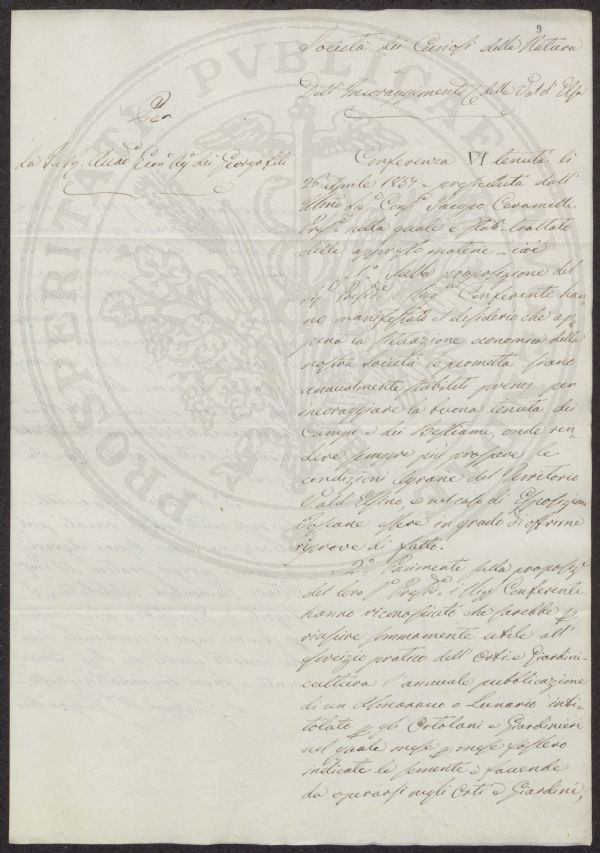 9
Società dei Curiosi della Natura
Dell' Incoraggimento della Val d' Elsa
Per
La I. e R. Accad.ª Econ.º Ag.ª dei Georgofili
Conferenza VI tenuta li
26 Aprile 1857 presieduta dall'
Illmo Sig. Jacopo
nella quale è stato trattato
delle appresso materie cioè
1º Sulla proposizione del
Sig.º Presid.e i Sigg.ri Conferenti han=
no manifestato il desiderio che ap=
pena la situazione economica della
nostra società lo permetta siano
annualmente stabiliti premj per
incoraggiare la buona tenuta dei
Campi, e dei Bestiami, onde ren=
dere sempre più prospere le
condizioni Agrarie del Territorio
Val d' Elsano, e nel caso di Esposizioni
Toscane essere in grado di offrirne
riprove di fatto.
2º Parimente sulla proposiz.e
del loro Sig.º Presid.e i Sigg.ri Conferenti
hanno riconosciuto che sarebbe p
riuscire sommamente utile all'
esercizio pratico dell' Orti= e Giardini=
cultura l'annuale pubblicazione
di un Almanacco o Lunario inti=
tolato p gli Ortolani e Giardinieri
nel quale mese p mese fossero
indicate le semente e faccende
da operarsi negli Orti e Giardini,
PROSPERITATI PVBLICAE